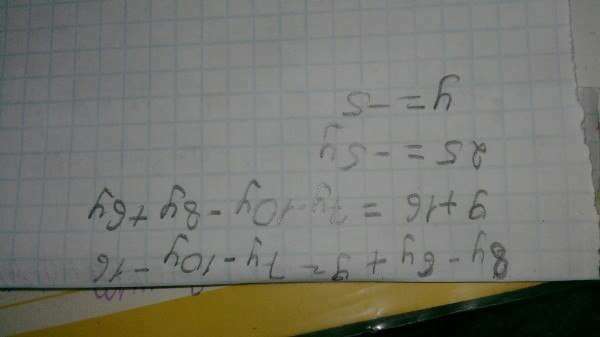 8y - 6y + 9 = 7y - 10y - 16
9 + 16 = 7y - 10y - 8y + 6y
25 = -5y
y = -5